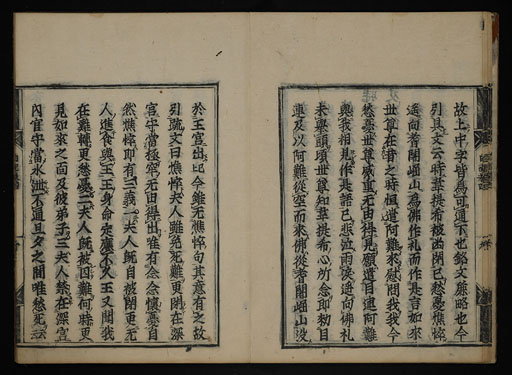 故上中字皆爲可通下也銘文廉略也今
引具文云時韋提希被幽閉已愁憂憔悴
遙向耆闍崛山爲佛作礼而作是言如來
世尊在昔之時恒遣阿難來慰問我我今
愁憂世尊威重无由得見願遣目連阿難
與我相見作是語已悲泣雨淚遙向佛礼
未舉頭頃世尊知韋提希心所念即勑目
連及以阿難從空而來佛從耆闍崛山没
於王宮出此今雖无憔悴句其意有之故
引疏文曰憔悴夫人雖免死難更閉在深
宮守當極窄无由得出唯有念念懷憂自
然憔悴即有三義一夫人既自被閉更无
人進食與王王身命定應不久王又聞我
在難轉更愁憂二夫人既被囚難何時更
見如來之面及彼弟子三夫人禁在深宮
內官守當水泄不通旦夕之間唯愁死